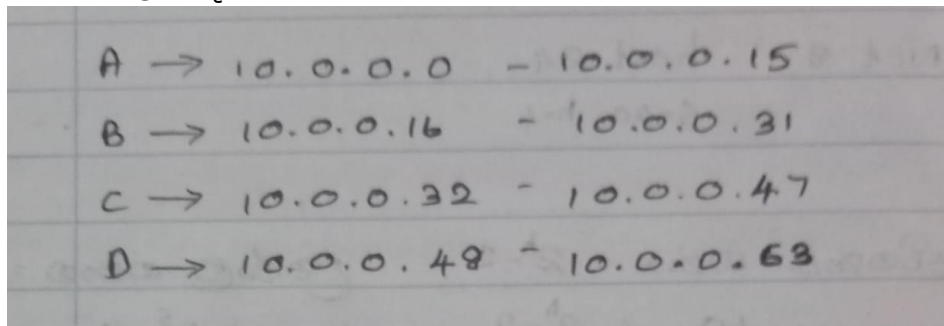 A → 10.0.0.0 - 10.0.0.15
B → 10.0.0.16 - 10.0.0.31
C → 10.0.0.32 - 10.0.0.47
D → 10.0.0.48 - 10.0.0.63